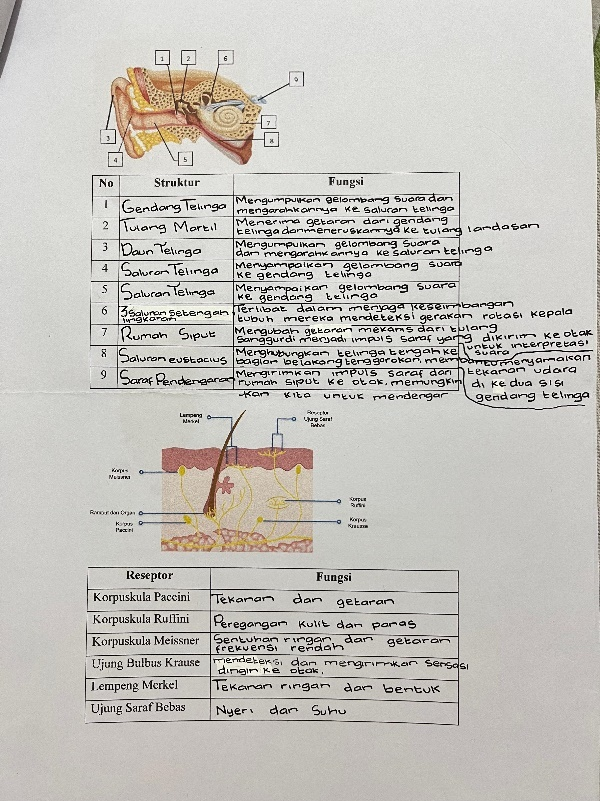 1 2 6
9
3
7
8
4
5
No Struktur Fungsi
1 Gendang Telinga Mengumpulkan gelombang suara dan
mengarahkannya ke saluran telinga
2 Tulang Martil Menerima getaran dari gendang
telinga dan meneruskannya ke tulang landasan
3 Daun Telinga Mengumpulkan gelombang suara
dan mengarahkannya ke saluran telinga
4 Saluran Telinga Menyampaikan gelombang suara
ke gendang telinga
5 Saluran Telinga Menyampaikan gelombang suara
ke gendang telinga
6 3 Saluran setengah lingkaran Terlibat dalam menjaga keseimbangan
tubuh mereka mendeteksi gerakan rotasi kepala
7 Rumah Siput Mengubah getaran mekanis dari tulang
sanggurdi menjadi impuls saraf yang dikirim ke otak
untuk interpretasi
suara
8 Saluran eustacius Menghubungkan telinga tengah ke
bagian belakang tenggorokan, membantu menyamakan
tekanan udara
di kedua sisi
gendang telinga
9 Saraf Pendengaran Mengirimkan impuls saraf dari
rumah siput ke otak, memungkin
-kan kita untuk mendengar
Lempeng
Merkel
Reseptor
Ujung Saraf
Bebas
Korpus
Meissner
Korpus
Ruffini
Rambut dan Organ
Korpus
Paccini
Korpus
Krausse
Reseptor Fungsi
Korpuskula Paccini Tekanan dan getaran
Korpuskula Ruffini Peregangan kulit dan panas
Korpuskula Meissner Sentuhan ringan dan getaran
frekuensi rendah
Ujung Bulbus Krause mendeteksi dan mengirimkan sensasi
dingin ke otak.
Lempeng Merkel Tekanan ringan dan bentuk
Ujung Saraf Bebas Nyeri dan Suhu